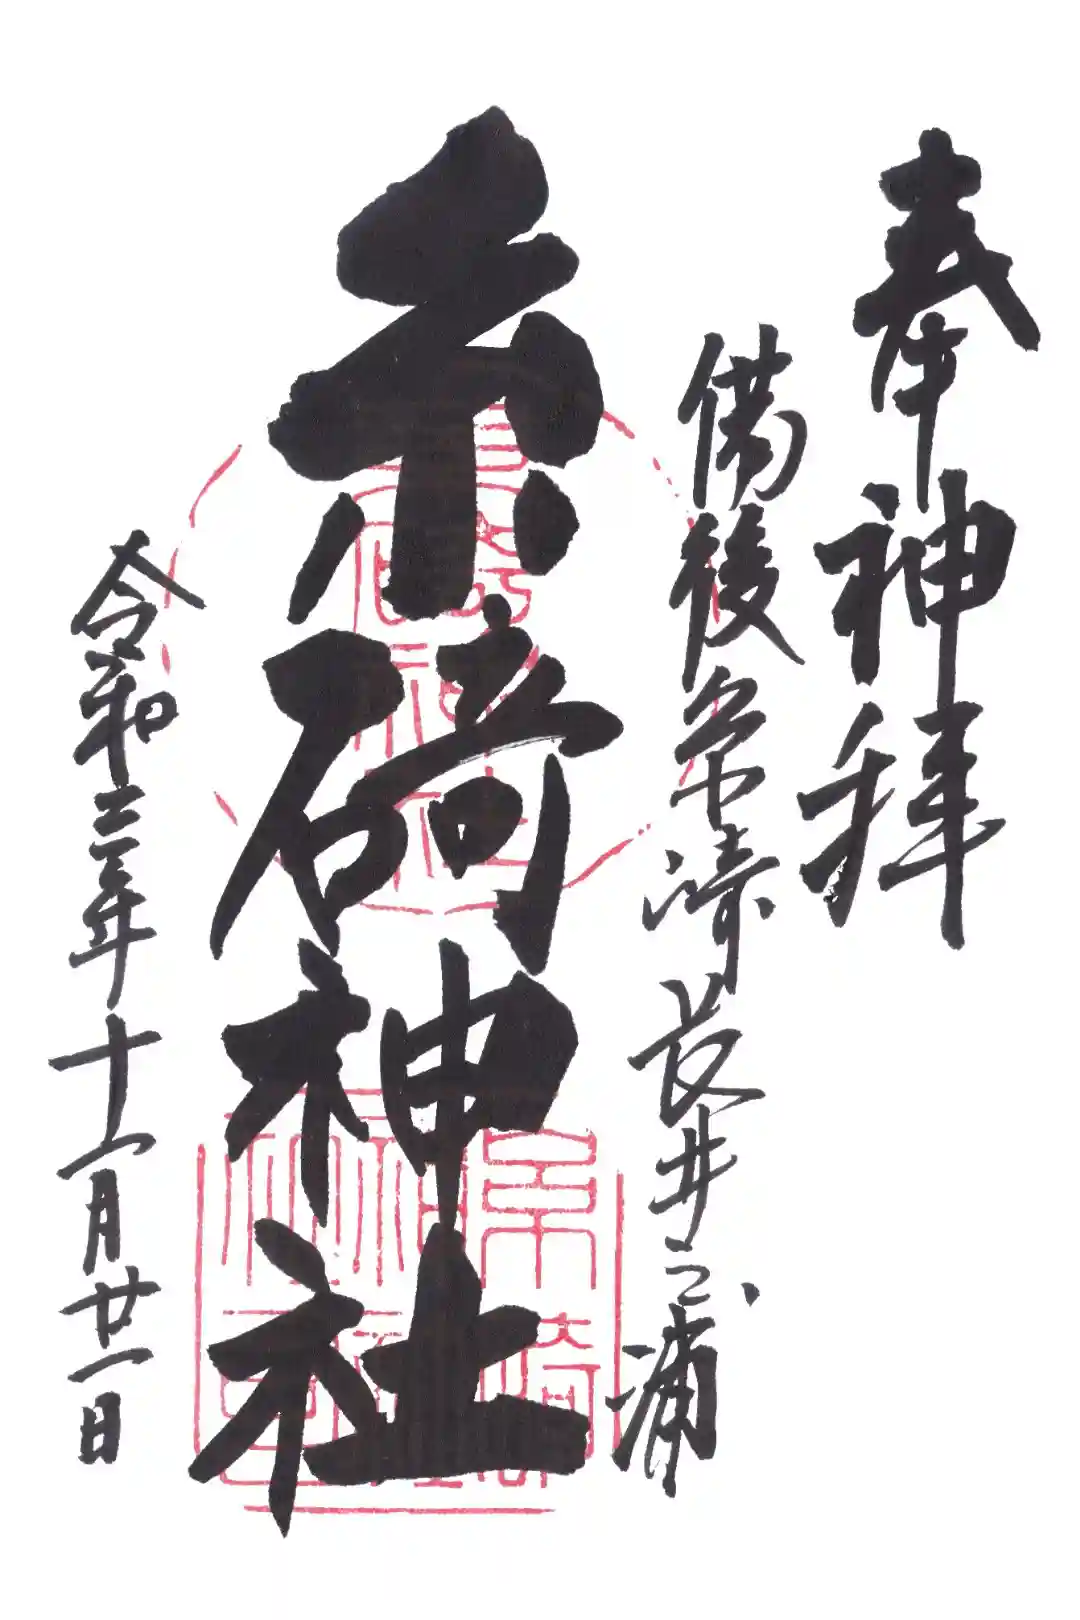 奉神拝
備後糸崎長井之浦
糸碕神社
令和三年十一月廿一日